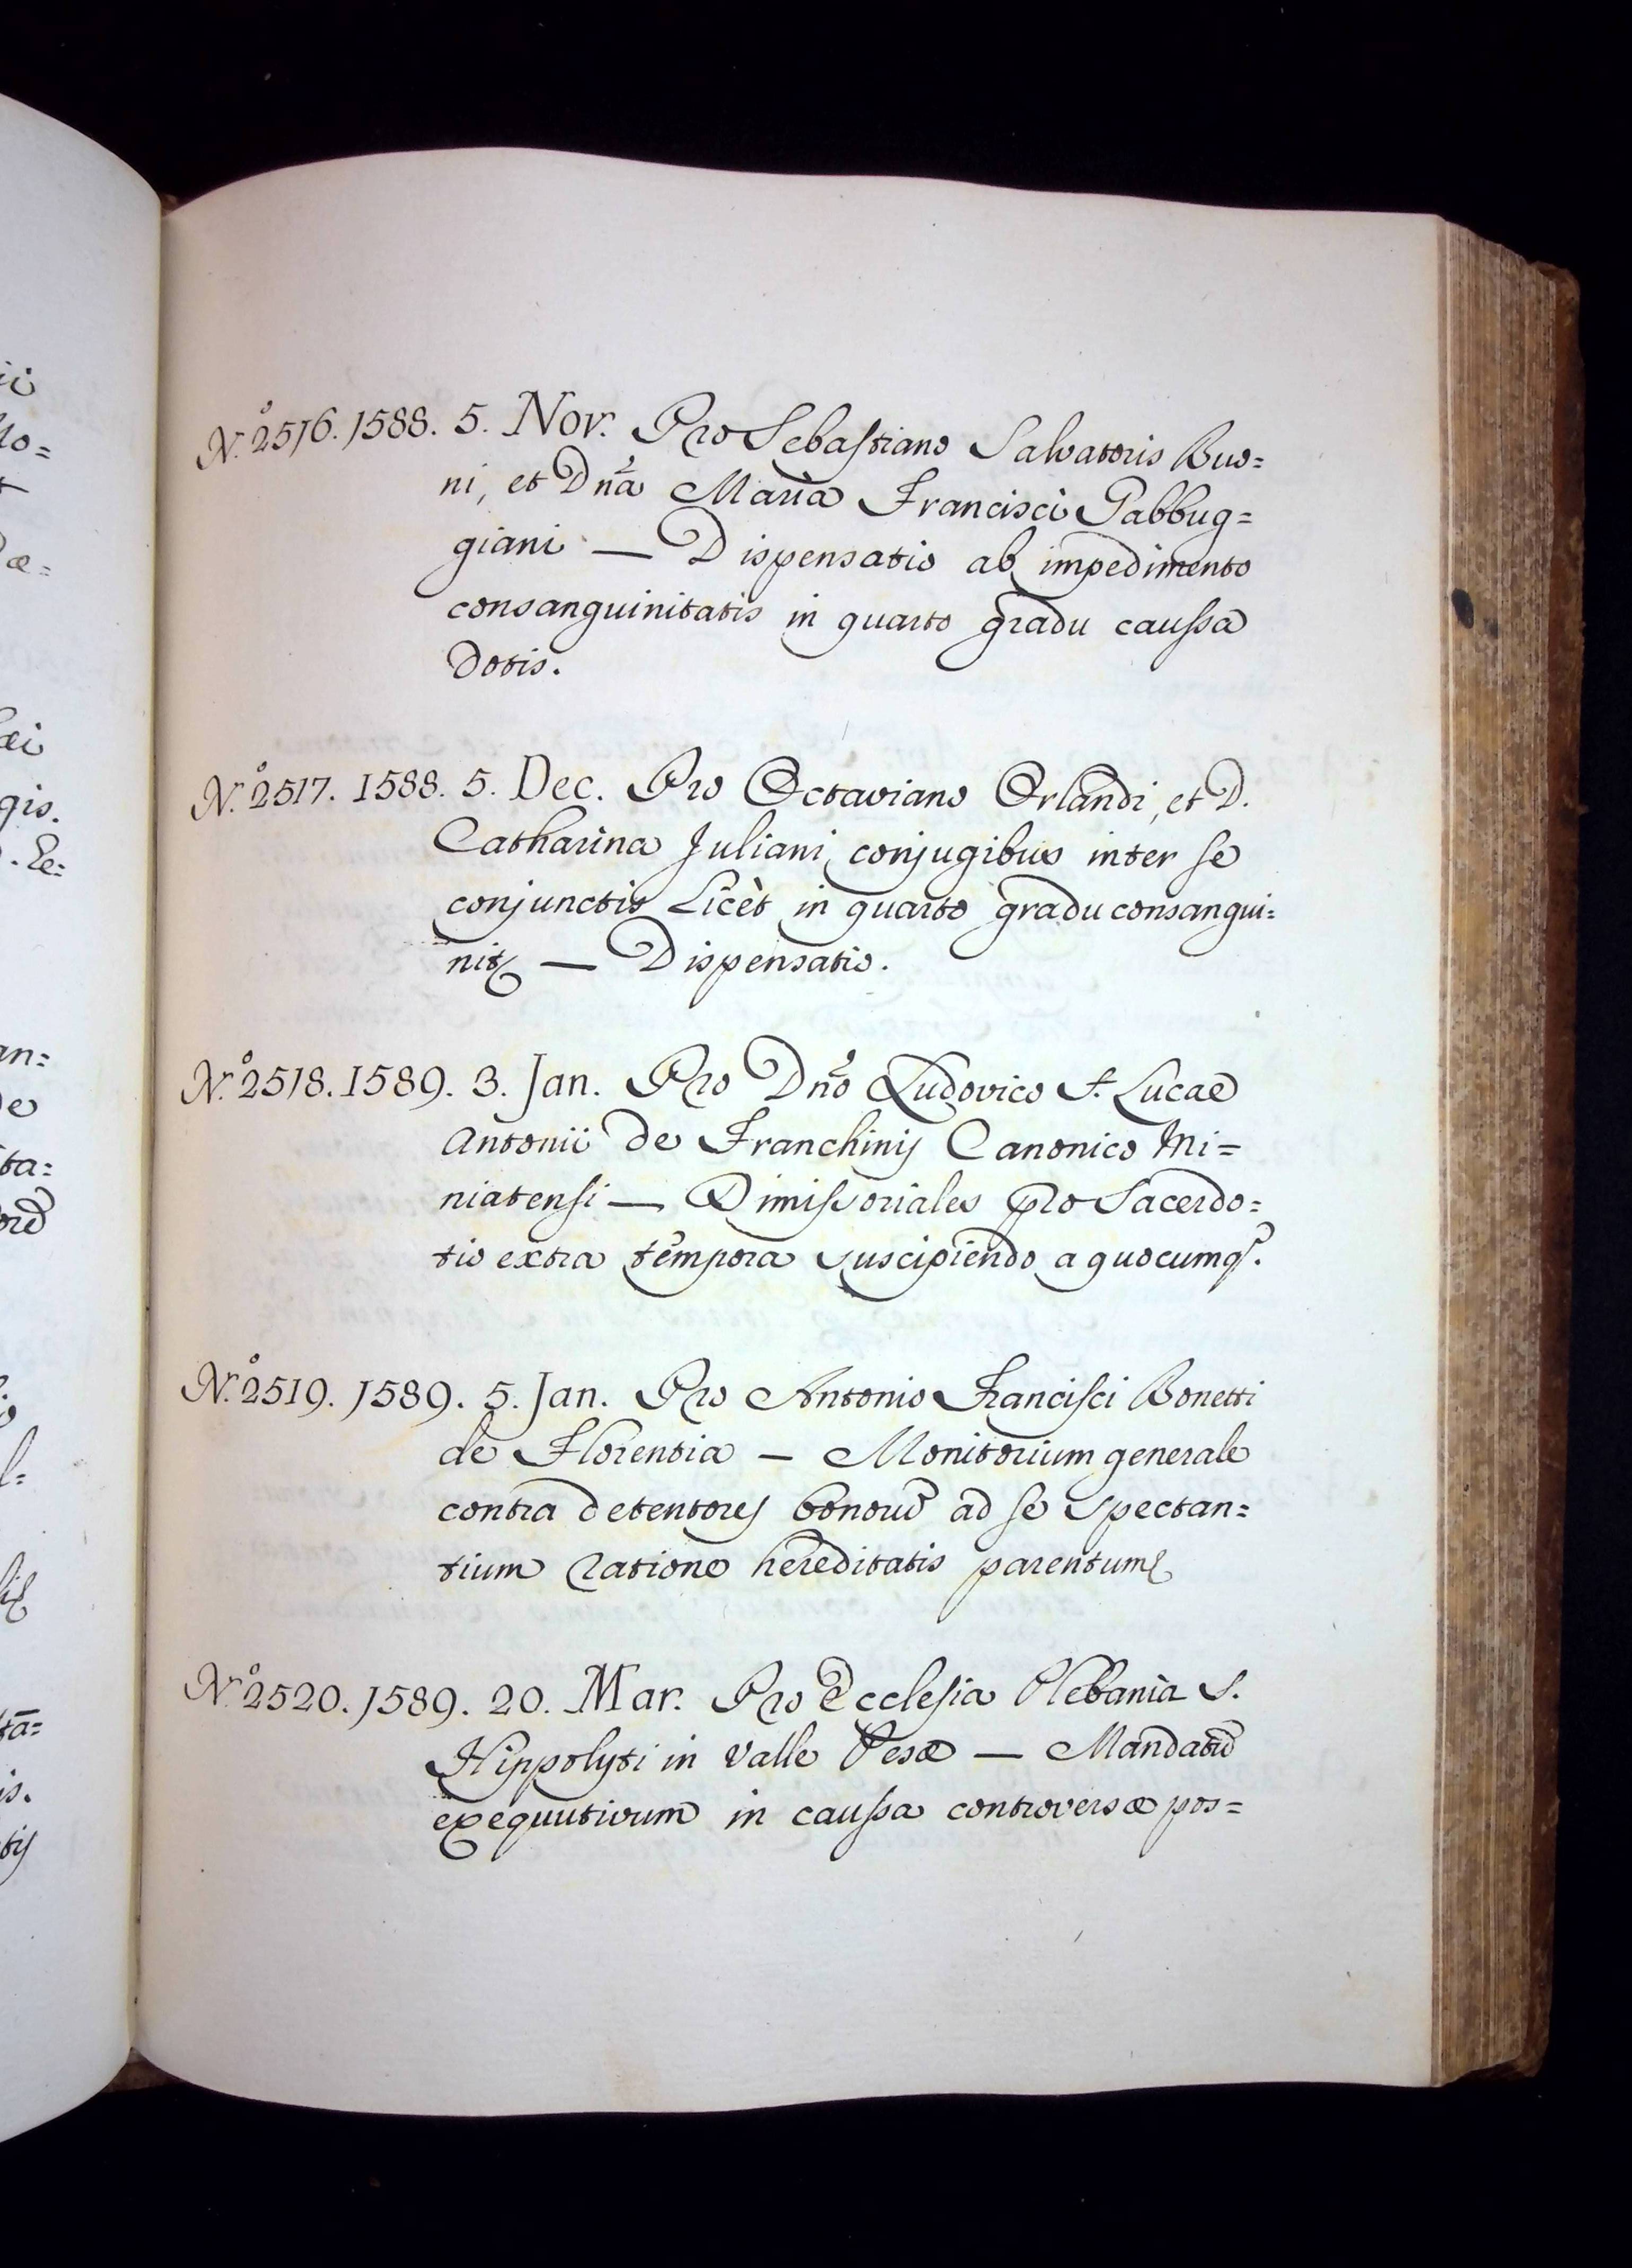 N.º 2516. 1588. 5. Nov. Pro Sebastiano Salvatoris Buo=
ni, et Dña Maria Francisci Gabbug=
giani — Dispensatio ab impedimento
consanguinitatis in quarto gradu caussa
Dotis.
N.º 2517. 1588. 5. Dec. Pro Octaviano Orlandi, et D.
Catharina Juliani conjugibus inter se
conjunctis Licèt in quarto gradu consangui=
nit — Dispensatio.
N.º 2518. 1589. 3. Jan. Pro Dño Ludovico S. Lucae
Antonii de Franchinis Canonico Mi=
niatensi — Dimissoriales pro Sacerdo=
tio extra tempora suscipiendo a quocumq.
N.º 2519. 1589. 5. Jan. Pro Antonio Francisci Bonetti
de Florentia — Monitorium generale
contra detentores bonorũ ad se spectan=
tium ratione hereditatis parentum
N.º 2520. 1589. 20. Mar. Pro Ecclesia Plebania S.
Hippolyti in Valle Pesæ — Mandatũ
exequutivum in caussa controversæ pos=